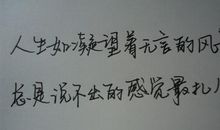 人生如凝望着无言的风
总是说不出的感觉最扎